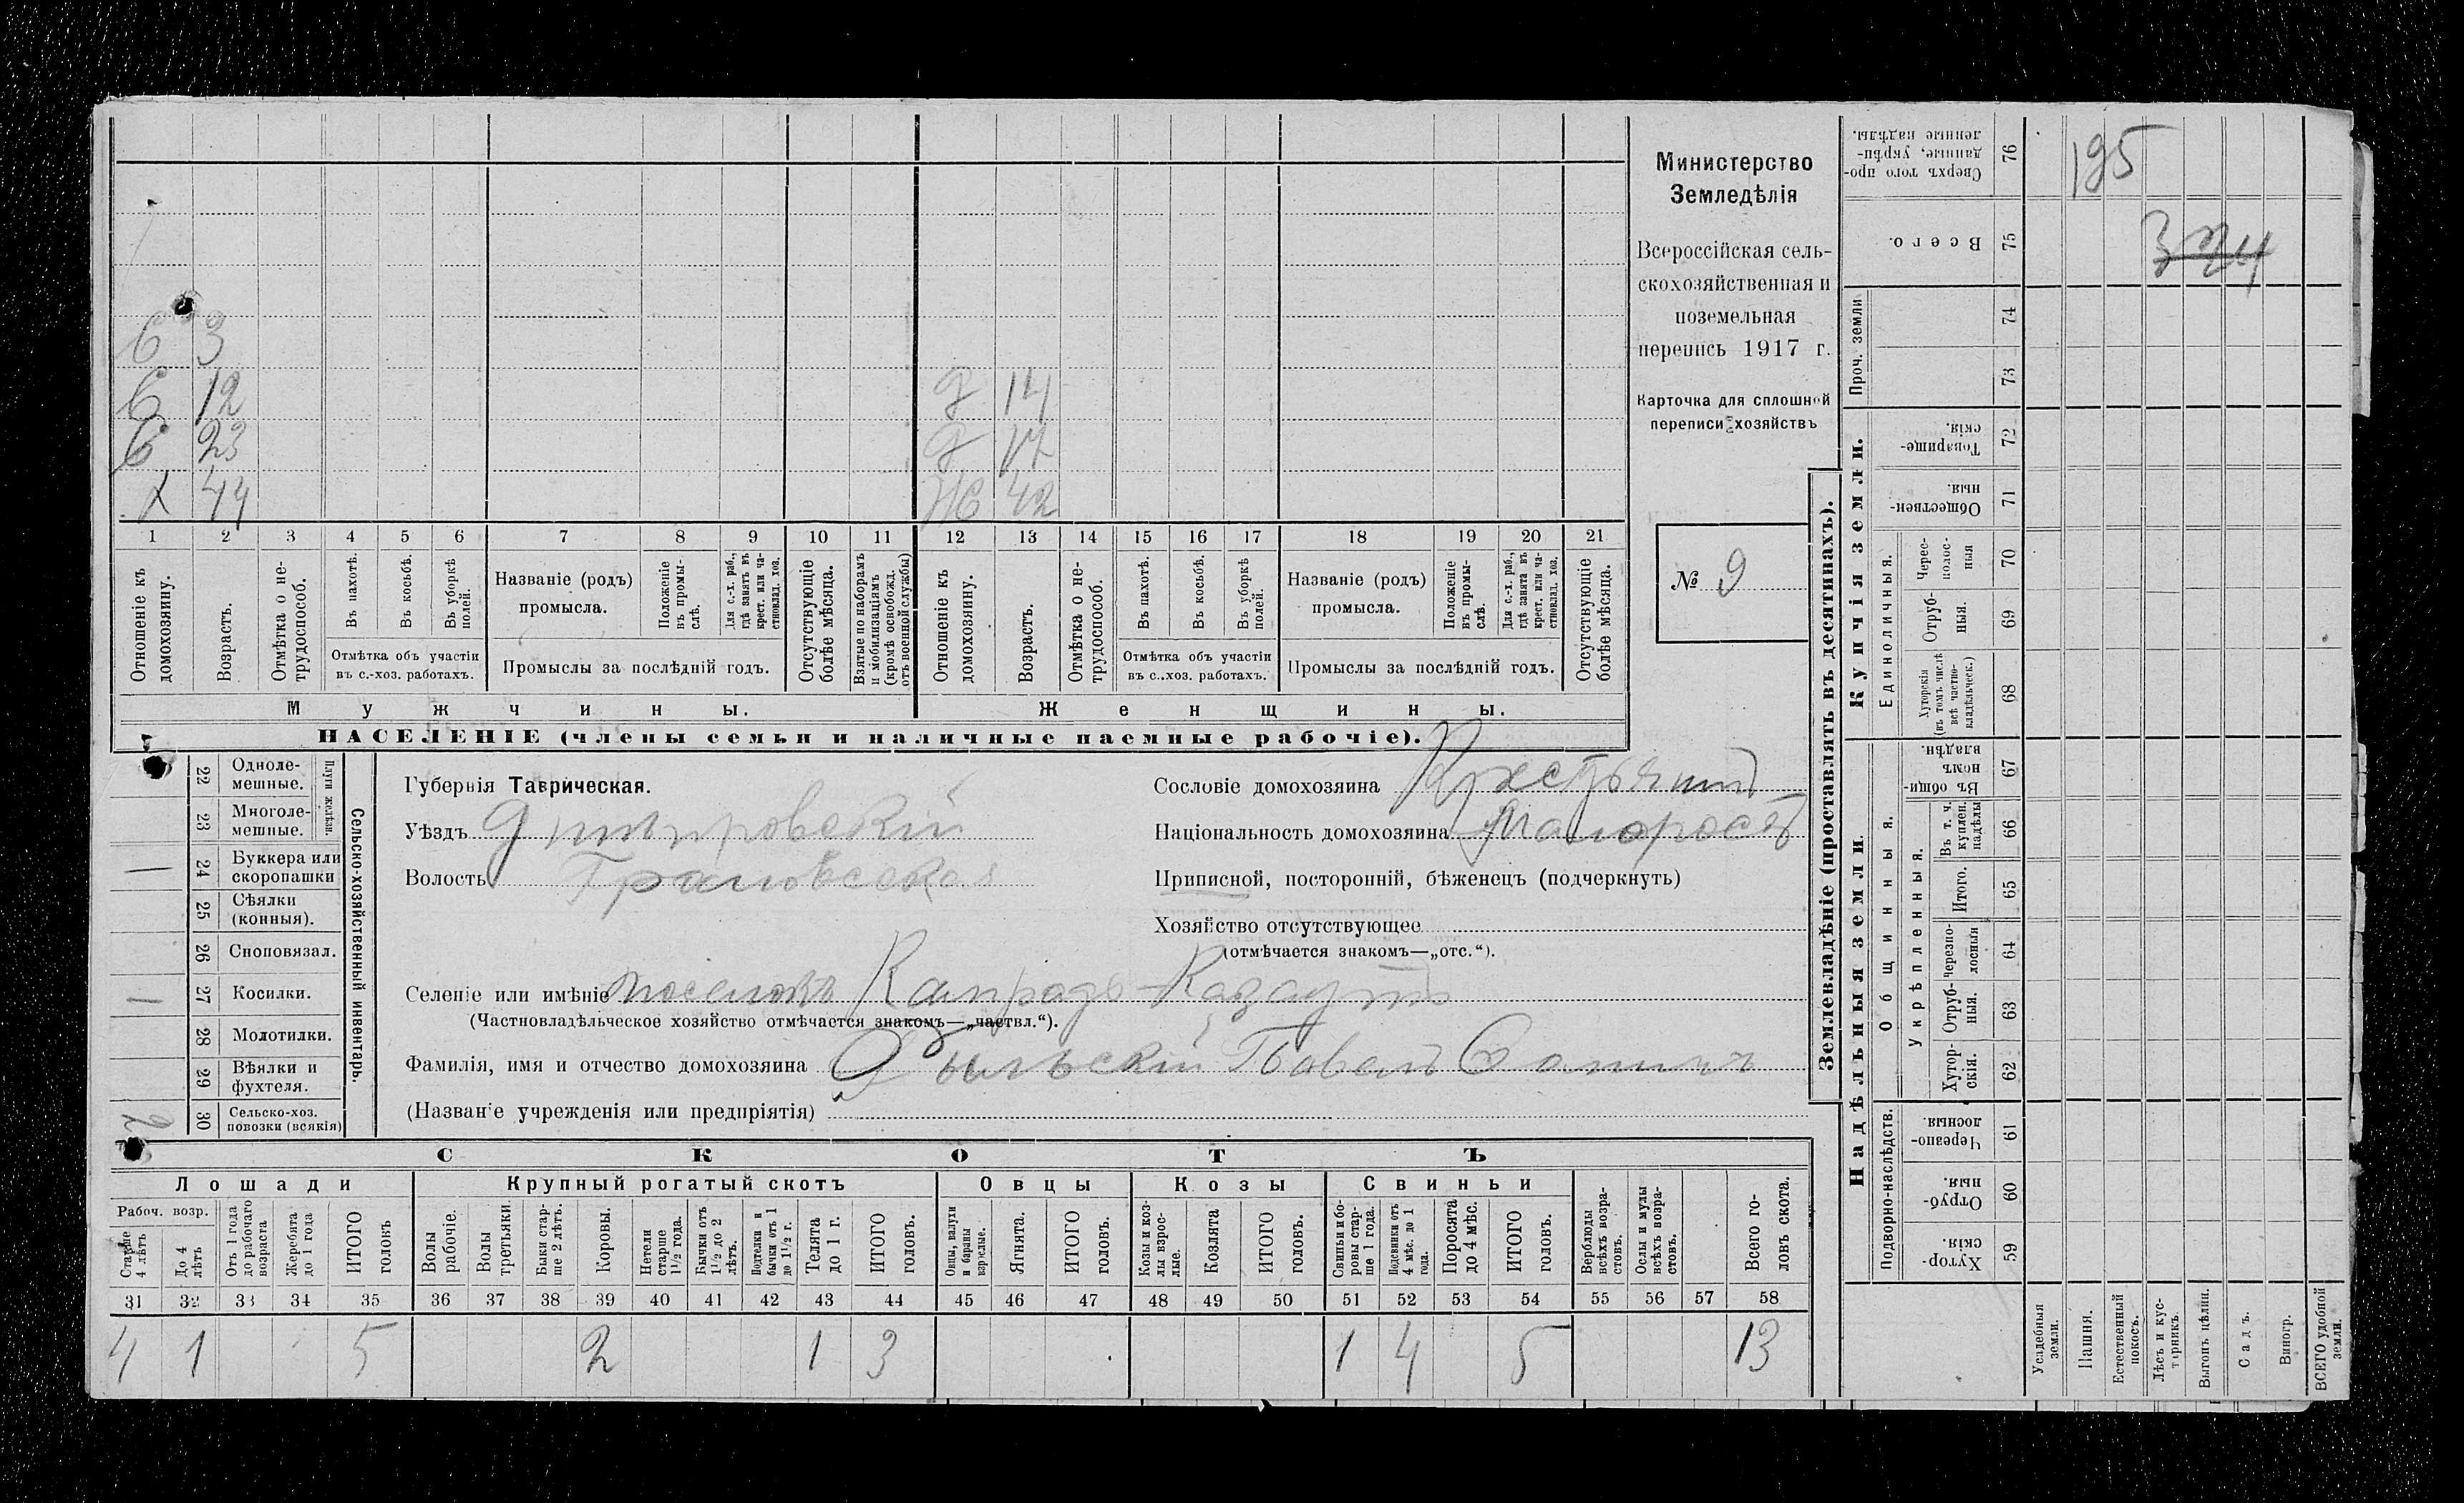 С 3
С 12 д 14
С 23 д 17
Х 44 Ж 42
1 2 3 4 5 6 7 8 9 10 11 12 13 14 15 16 17 18 19 20 21
Отношеніе къ домохозяину.
Возрастъ.
Отмѣтка о не-
трудоспособ.
Въ пахотѣ.
Въ косьбѣ.
Въ уборкѣ
полей.
Отмѣтка объ участіи
въ с.-хоз. работахъ.
Названіе (родъ)
промысла.
Положеніе
въ промы-
слѣ.
Для с.-х. раб.,
гдѣ занятъ въ
крест. или ча-
стновлад. хоз.
Промыслы за послѣдній годъ.
Отсутствующіе
болѣе мѣсяца.
Взятые по наборамъ
и мобилизаціямъ
(кромѣ освобожд.
отъ военной службы)
Отношеніе къ
домохозяину.
Возрастъ.
Отмѣтка о не-
трудоспособ.
Въ пахотѣ.
Въ косьбѣ.
Въ уборкѣ
полей.
Отмѣтка объ участіи
въ с..хоз. работахъ.
Названіе (родъ)
промысла.
Положеніе
въ промы-
слѣ.
Для с.-х. раб.,
гдѣ занята въ
крест. или ча-
стновлад. хоз.
Промыслы за послѣдній годъ.
Отсутствующіе
болѣе мѣсяца.
Мужчины. Женщины.
НАСЕЛЕНІЕ (члены семьи и наличные наемные рабочіе).
Министерство
Земледѣлія
Всероссійская сель-
скохозяйственная и
поземельная
перепись 1917 г.
Карточка для сплошной
переписи хозяйствъ
№ 9
22 Одноле-
мешные.
23 Многоле-
мешные.
Плуги желѣзн.
24 Буккера или
скоропашки 1
25 Сѣялки
(конныя).
26 Сноповязал.
27 Косилки. 1
28 Молотилки.
29 Вѣялки и
фухтеля.
30 Сельско-хоз.
повозки (всякія) 2
Сельско-хозяйственный инвентарь.
Губернія Таврическая.
Уѣздъ Днѣпровскій
Волость
Сословіе домохозяина Крестьянинъ
Національность домохозяина Малороссъ
Приписной, посторонній, бѣженецъ (подчеркнуть)
Хозяйство отсутствующее
(отмѣчается знакомъ—„отс.“).
Селеніе или имѣніе поселокъ
(Частновладѣльческое хозяйство отмѣчается знакомъ—„частвл.“).
Фамилія, имя и отчество домохозяина
(Названіе учрежденія или предпріятія)
СКОТЪ
Лошади Крупный рогатый скотъ Овцы Козы Свиньи
Рабоч. возр.
Старше
4 лѣтъ
До 4
лѣтъ
Отъ 1 года
до рабочаго
возраста
Жеребята
до 1 года
ИТОГО
головъ
Волы
рабочіе.
Волы
третьяки.
Быки стар-
ше 2 лѣтъ.
Коровы.
Нетели
старше
1½ года.
Бычки отъ
1½ до 2
лѣтъ.
Подтелки и
бычки отъ 1
до 1½ г.
Телята
до 1 г.
ИТОГО
головъ.
Овцы, валухи
и бараны
взрослые.
Ягнята.
ИТОГО
головъ.
Козы и коз-
лы взрос-
лые.
Козлята
ИТОГО
головъ.
Свиньи и бо-
ровы стар-
ше 1 года.
Подсвинки отъ
4 мѣс. до 1
года.
Поросята
до 4 мѣс.
ИТОГО
головъ.
Верблюды
всѣхъ возра-
стовъ.
Ослы и мулы
всѣхъ возра-
стовъ.
Всего го-
ловъ скота.
31 32 33 34 35 36 37 38 39 40 41 42 43 44 45 46 47 48 49 50 51 52 53 54 55 56 57 58
4 1 5 2 1 3 1 4 5 13
Землевладѣніе (проставлять въ десятинахъ).
Надѣльныя земли. Купчія земли.
Подворно-наслѣдств.
Общинныя.
Укрѣпленныя.
Единоличныя.
Проч. земли
Сверхъ того про-
данные, укрѣп-
ленные надѣлы. 76 195
Всего. 75
74
73
Товарище-
скія. 72
Обществен-
ныя. 71
Черес-
полос-
ныя 70
Отруб-
ныя. 69
Хуторскія
(въ томъ числѣ
всѣ частно-
владѣльческ.) 68
Въ общин-
номъ
владѣн. 67
Въ т. ч.
куплен.
надѣлы 66
Итого. 65
Черезпо-
лосныя 64
Отруб-
ныя. 63
Хутор-
скія. 62
Черезпо-
лосныя. 61
Отруб-
ныя. 60
Хутор-
скія. 59
Усадебныя
земли.
Пашня.
Естественный
покосъ.
Лѣсъ и кус-
тарникъ.
Выгонъ цѣлин.
Садъ.
Виногр.
ВСЕГО удобной
земли.